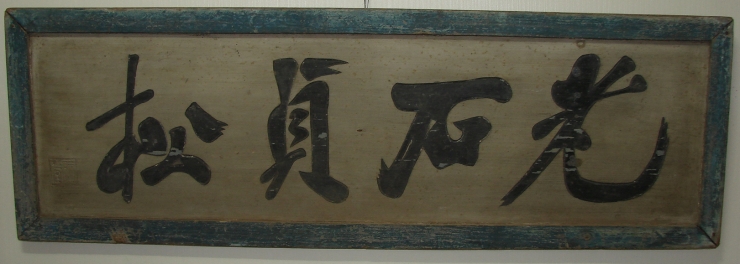 老石貞松